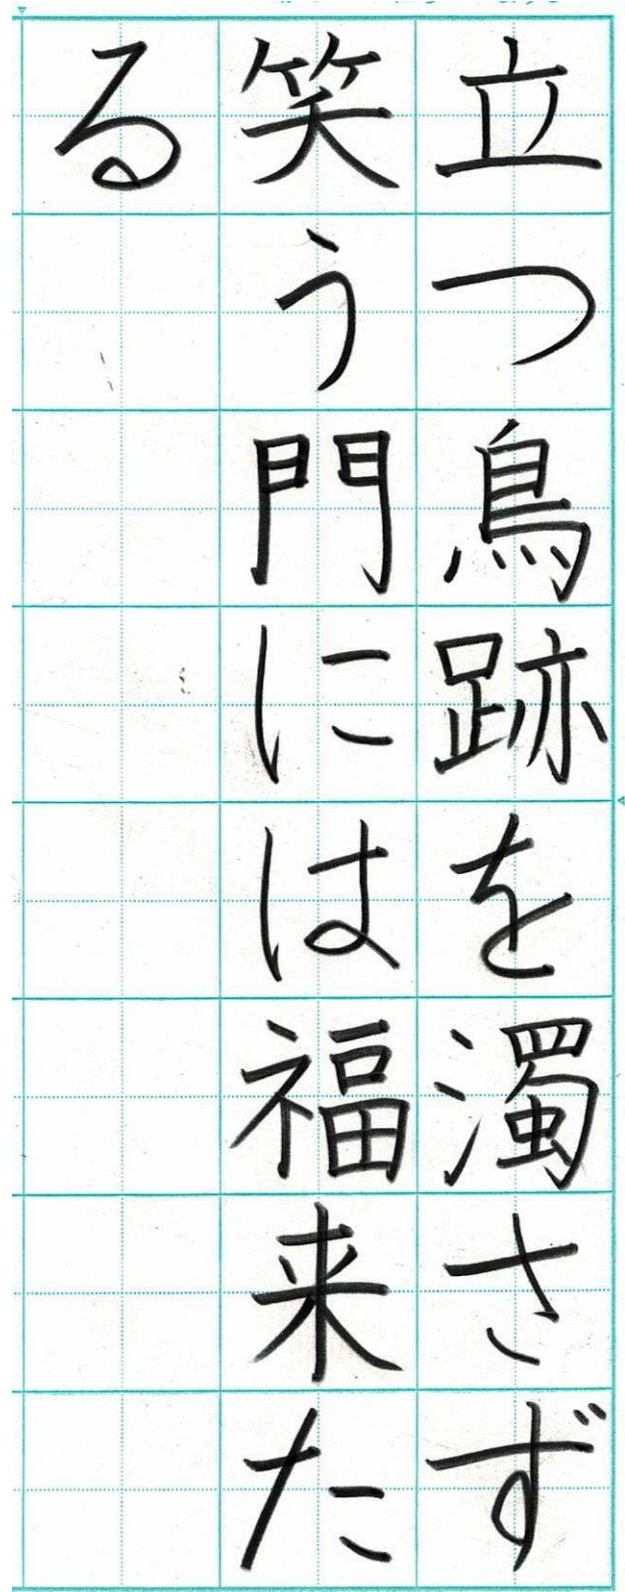 立つ鳥跡を濁さず
笑う門には福来た
る